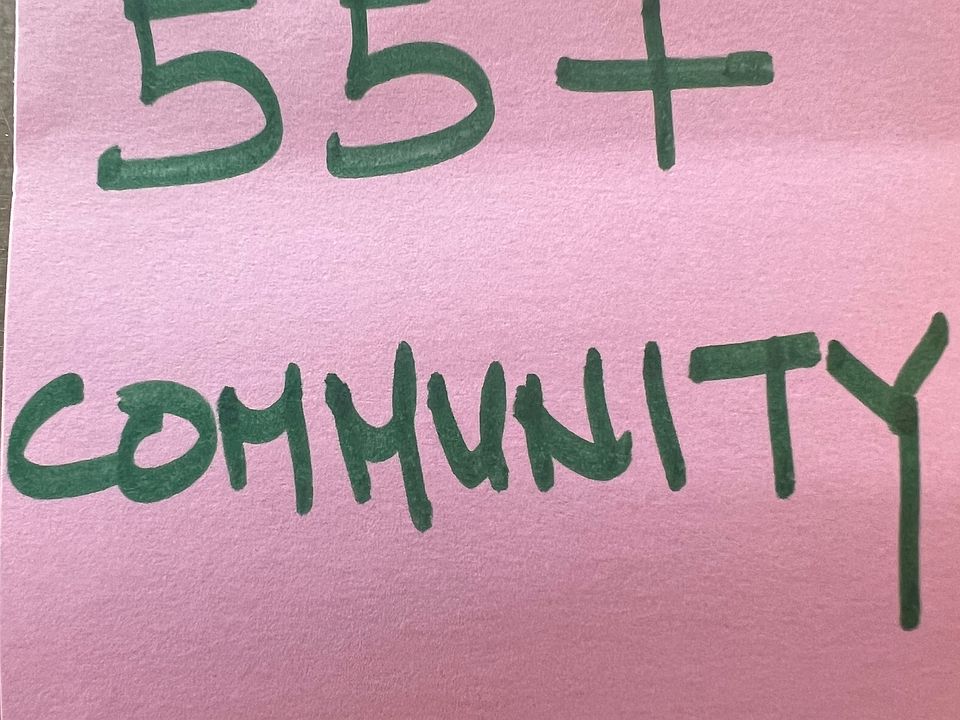 55+
COMMUNITY